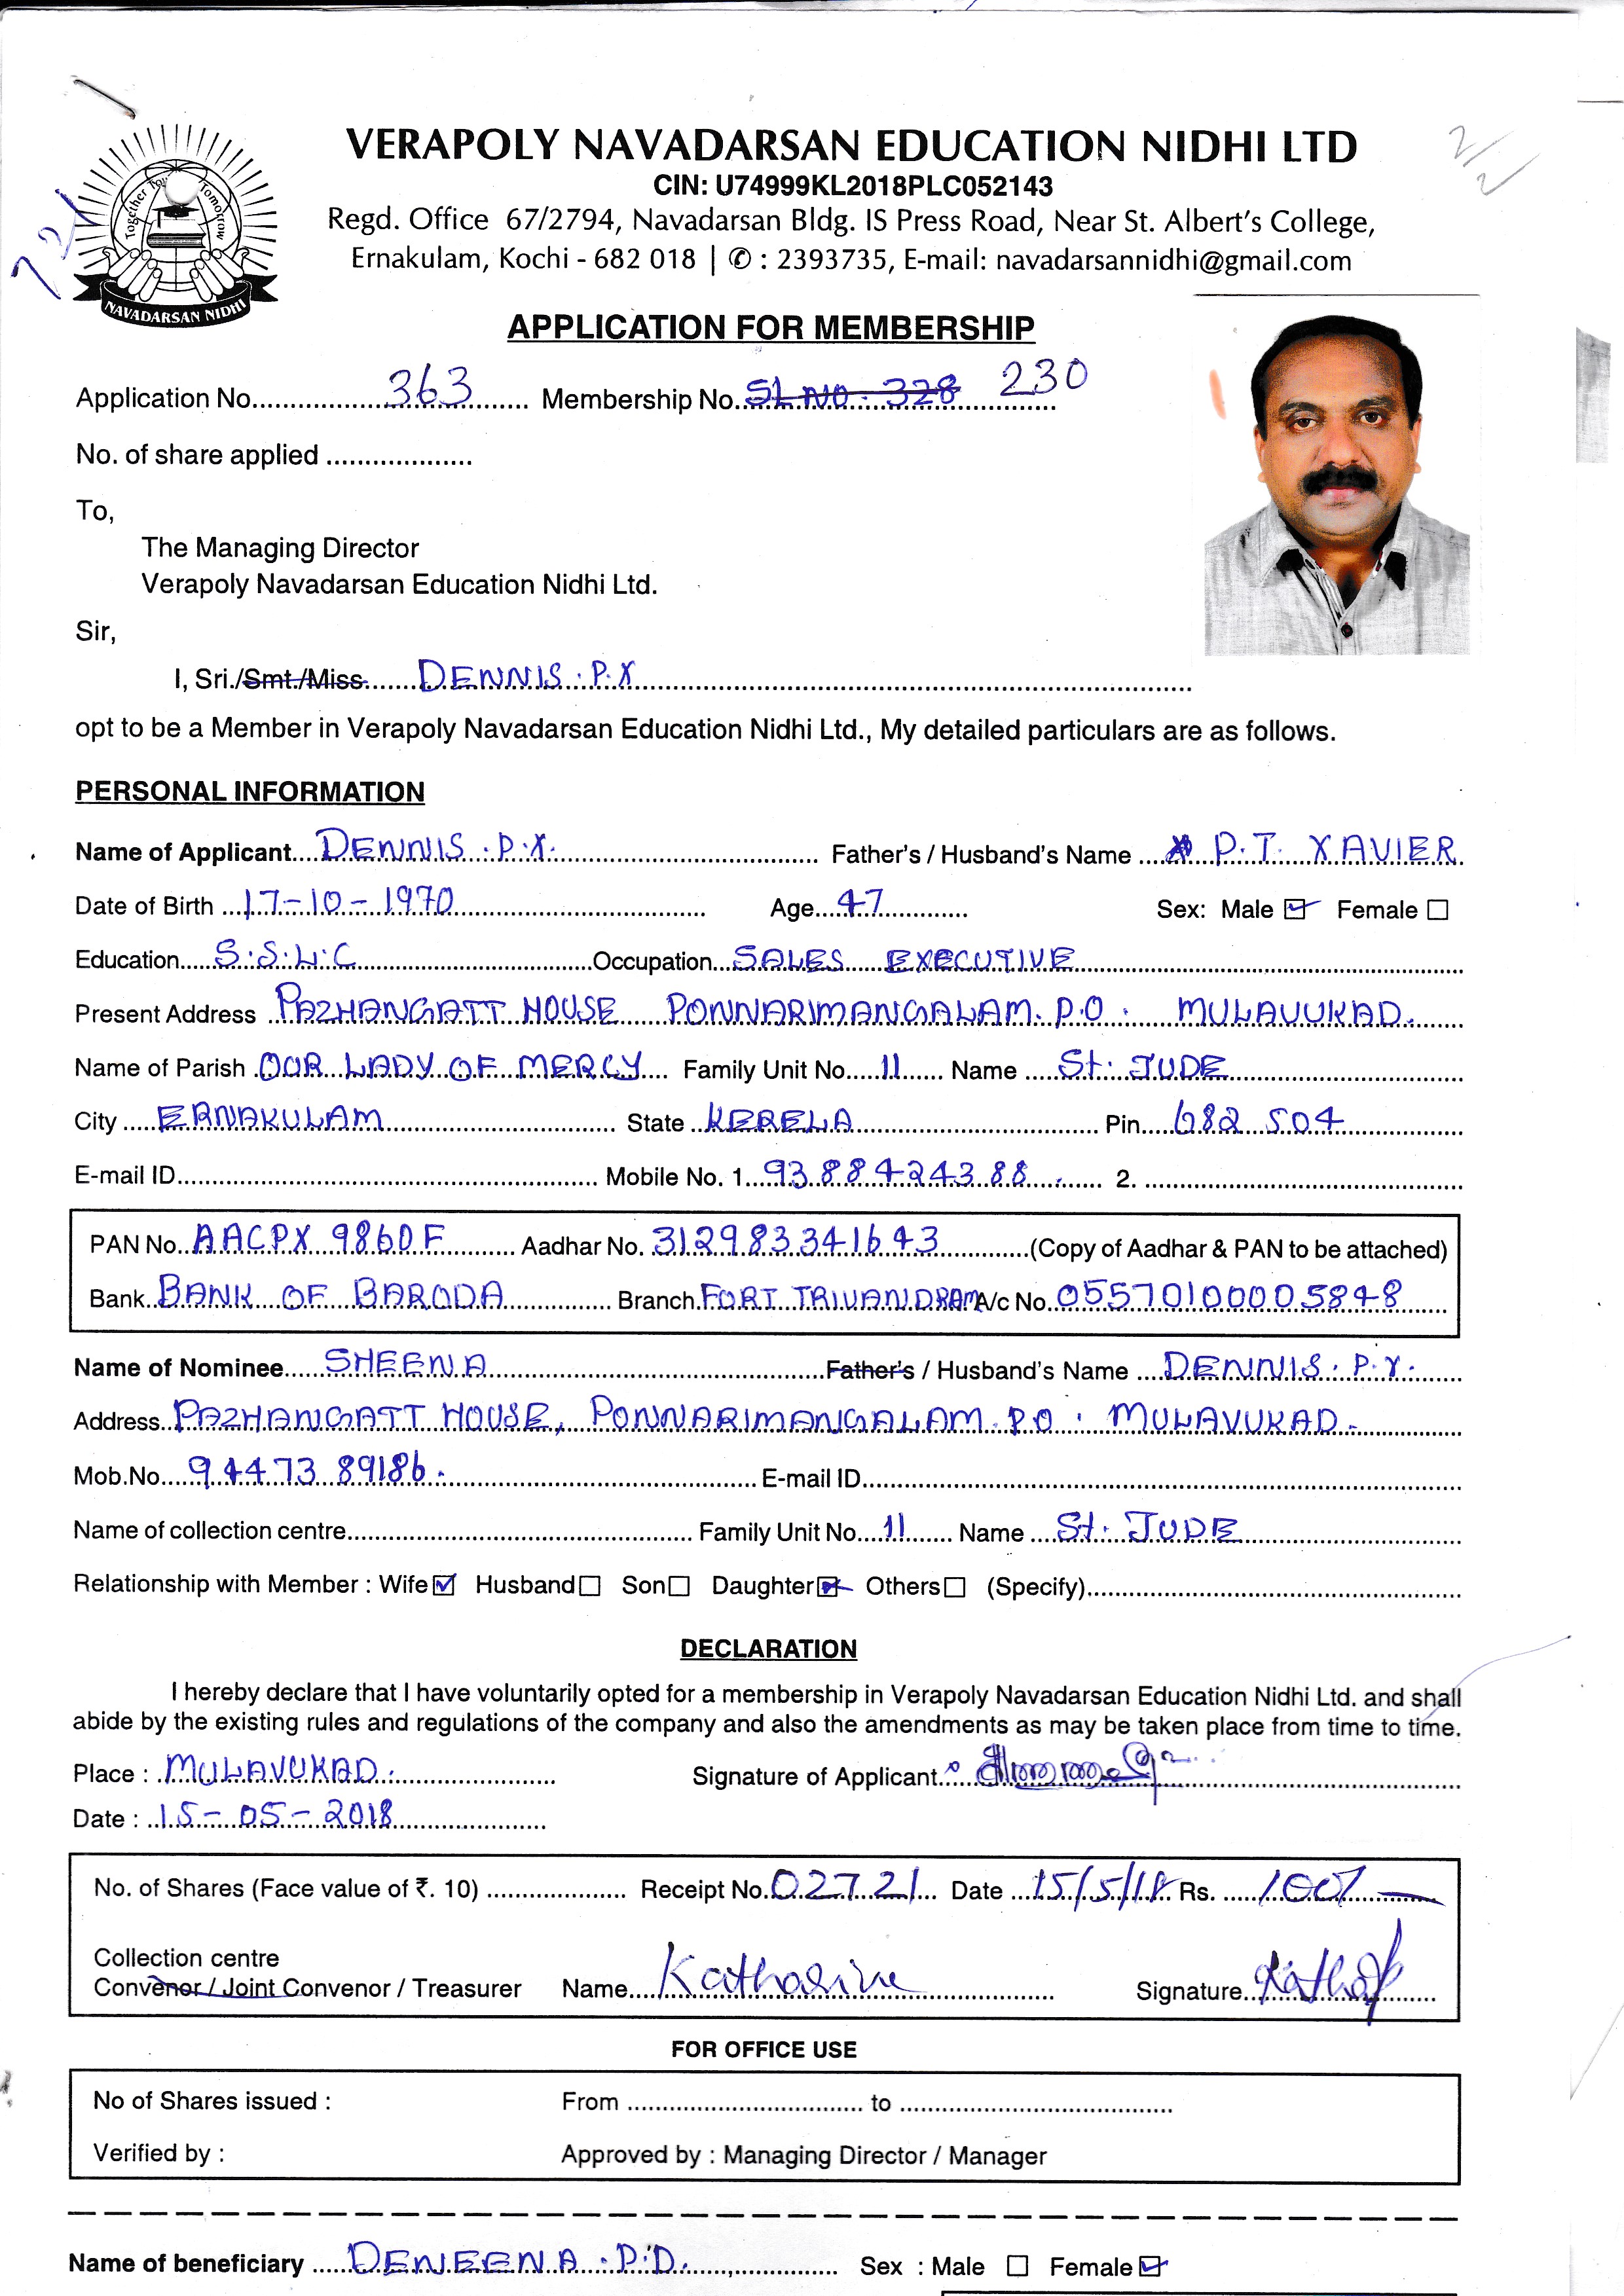 VERAPOLY NAVADARSAN EDUCATION NIDHI LTD
CIN: U74999KL2018PLC052143
Regd. Office 67/2794, Navadarsan Bldg. IS Press Road, Near St. Albert's College,
Ernakulam, Kochi - 682 018 | ✆ : 2393735, E-mail: navadarsannidhi@gmail.com
Together To Tomorrow
NAVADARSAN NIDHI
721
2/2
APPLICATION FOR MEMBERSHIP
Application No. 363 Membership No. SL NO. 328 230
No. of share applied ...................
To,
The Managing Director
Verapoly Navadarsan Education Nidhi Ltd.
Sir,
I, Sri./Smt./Miss. DENNIS. P.X
opt to be a Member in Verapoly Navadarsan Education Nidhi Ltd., My detailed particulars are as follows.
PERSONAL INFORMATION
Name of Applicant DENNIS . P.X. Father's / Husband's Name P.T. XAVIER
Date of Birth 17-10-1970 Age 47 Sex: Male ☑ Female ☐
Education S.S.L.C Occupation SALES EXECUTIVE
Present Address PAZHANGATT HOUSE PONNARIMANGALAM. P.O. MULAVUKAD.
Name of Parish OUR LADY OF MERCY Family Unit No. 11 Name St. JUDE
City ERNAKULAM State KERELA Pin 682 504
E-mail ID Mobile No. 1. 9388424388 2.
PAN No. AACPX 9860F Aadhar No. 312983341643 (Copy of Aadhar & PAN to be attached)
Bank BANK OF BARODA Branch FORT TRIVANDRAM A/c No. 05570100005848
Name of Nominee SHEENA Father's / Husband's Name DENNIS. P.X.
Address PAZHANGATT HOUSE, PONNARIMANGALAM. P.O. MULAVUKAD.
Mob.No. 94473 89186. E-mail ID
Name of collection centre Family Unit No. 11 Name St. JUDE
Relationship with Member : Wife ☑ Husband ☐ Son ☐ Daughter ☑ Others ☐ (Specify)
DECLARATION
I hereby declare that I have voluntarily opted for a membership in Verapoly Navadarsan Education Nidhi Ltd. and shall
abide by the existing rules and regulations of the company and also the amendments as may be taken place from time to time.
Place : MULAVUKAD. Signature of Applicant
Date : 15-05-2018
No. of Shares (Face value of ₹. 10) Receipt No. 02721 Date 15/5/18 Rs. 100/-
Collection centre
Convenor / Joint Convenor / Treasurer Name Katharine Signature
FOR OFFICE USE
No of Shares issued : From to
Verified by : Approved by : Managing Director / Manager
Name of beneficiary DENEENA . P.D. Sex : Male ☐ Female ☑